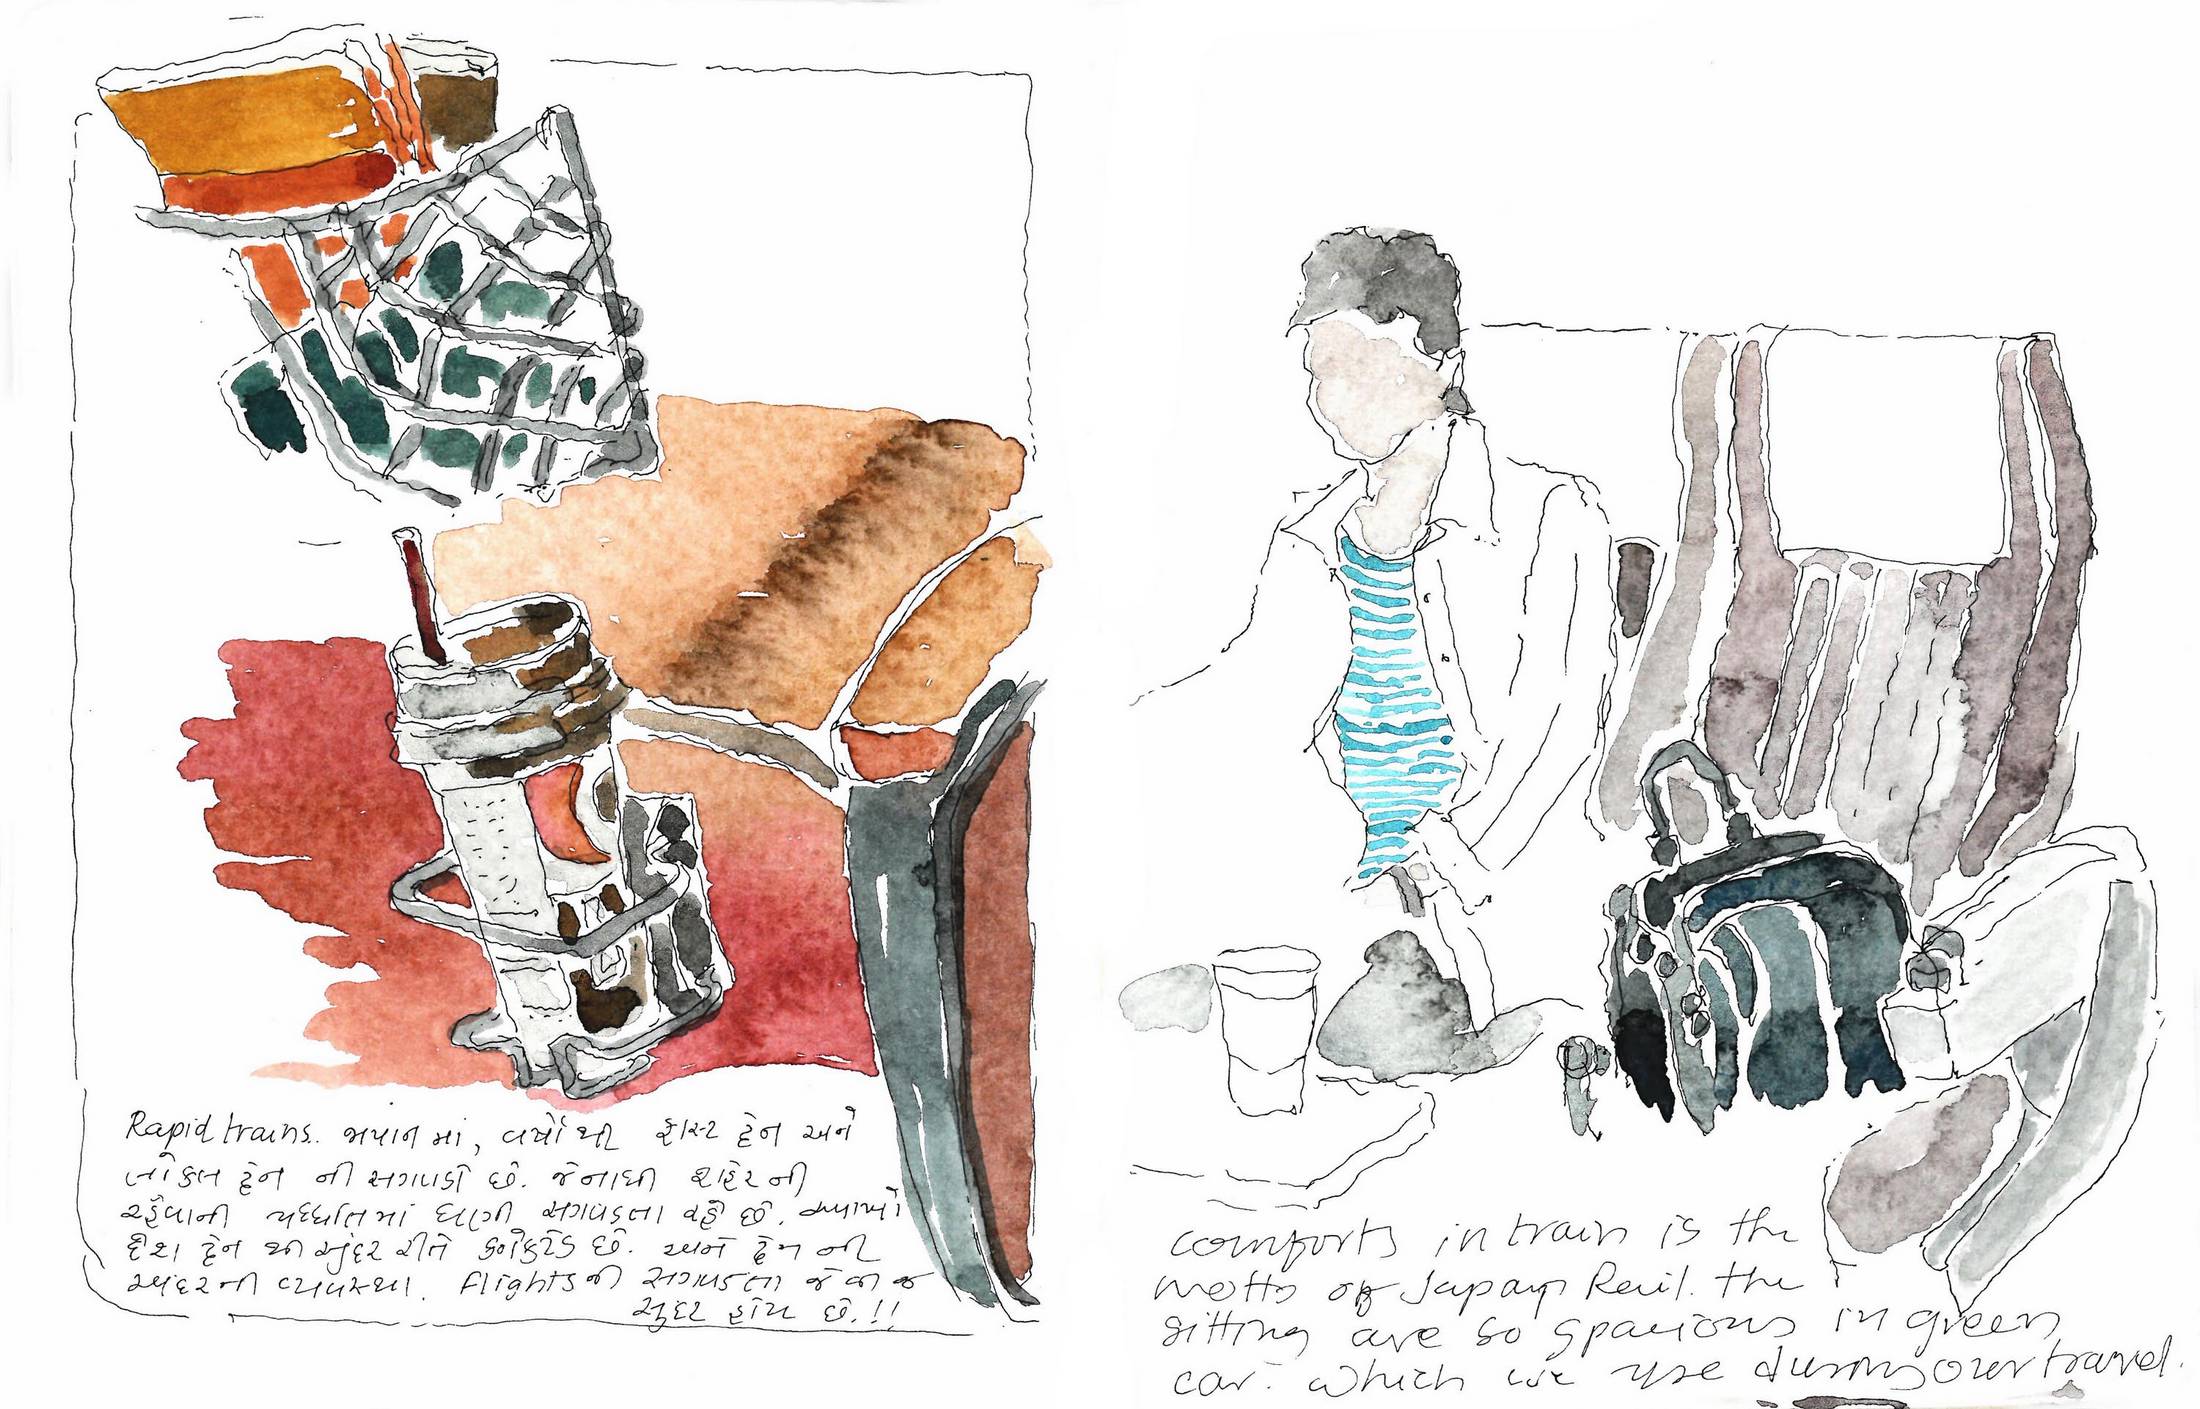 Rapid trains. જાપાન માં, વર્ષો થી ફાસ્ટ ટ્રેન અને
લોકલ ટ્રેન ની સગવડો છે. જેનાથી શહેર ની
રહેવાની પધ્ધતિમાં ઘણી સગવડતા રહે છે.
દેશ ટ્રેન થી સુંદર રીતે કનેક્ટેડ છે. અને ટ્રેન ની
અંદરની વ્યવસ્થા. flights ની સગવડતા જેવી જ
સુંદર હોય છે.!!
comforts in train is the
motto of Japan Rail. the
sitting are so spacious in green
car. which we use during our travel.